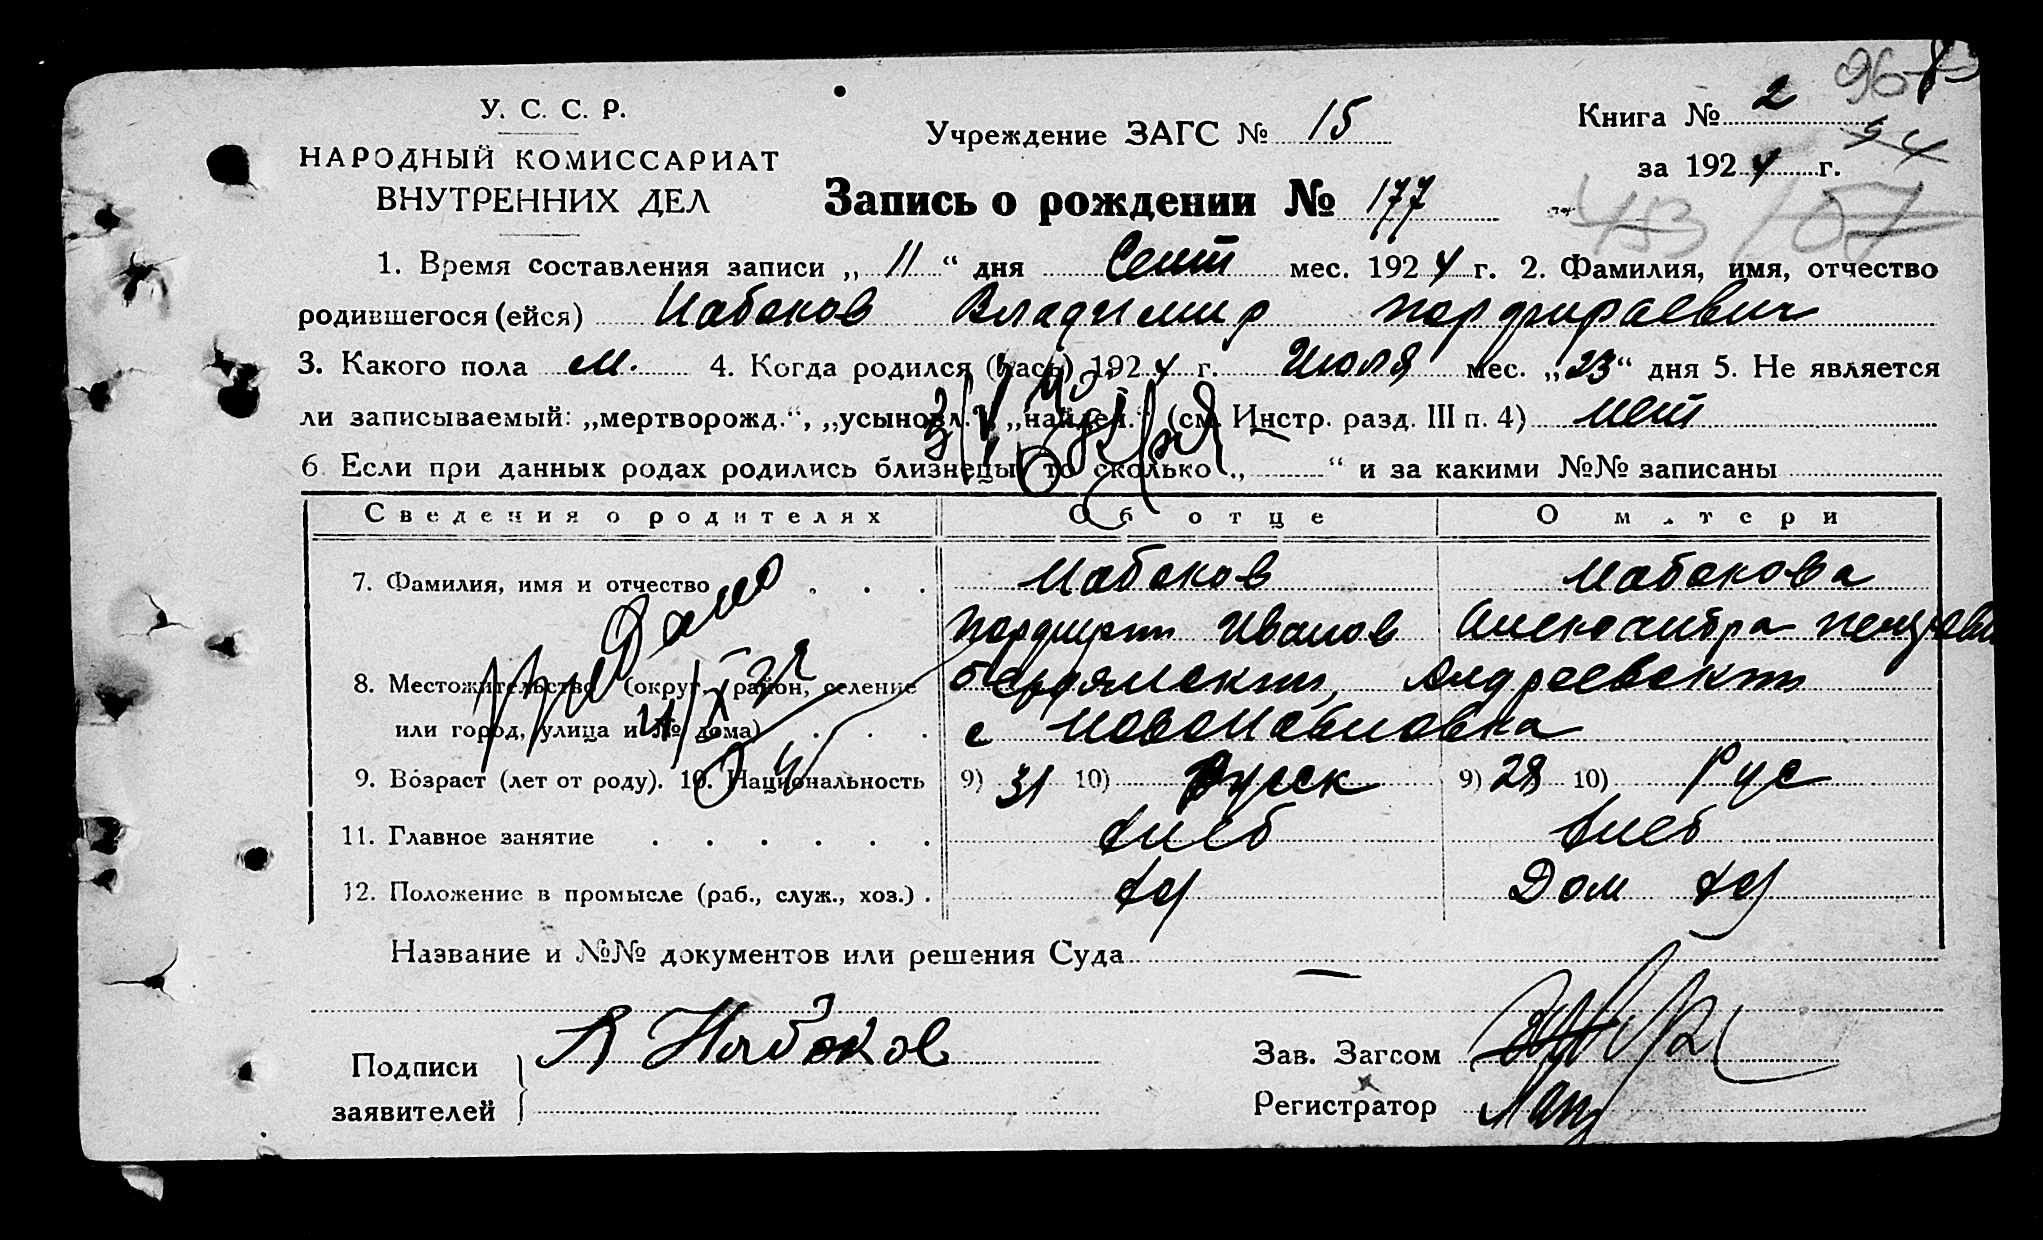 У. С. С. Р.
НАРОДНЫЙ КОМИССАРИАТ
ВНУТРЕННИХ ДЕЛ
Учреждение ЗАГС № 15
Книга № 2
за 1924 г.
96
54
453 / 07
Запись о рождении № 177
1. Время составления записи „ 11 “ дня Сент мес. 1924 г. 2. Фамилия, имя, отчество
родившегося (ейся) Набоков Владимир Порфираевич
3. Какого пола м. 4. Когда родился (час) 1924 г. Июля мес. „23“ дня 5. Не является
ли записываемый: „мертворожд.“, „усыновл.“, „найден.“ (см. Инстр. разд. III п. 4) нет
6. Если при данных родах родились близнецы, то сколько „ — “ и за какими №№ записаны
Сведения о родителях Об отце О матери
7. Фамилия, имя и отчество Набоков Набокова
Порфирий Иванов Александра
8. Местожительство (округ, район, селение Бердянский, Андреевский
или город, улица и № дома) с Новопавловка
9. Возраст (лет от роду). 10. Национальность 9) 31 10) Руск 9) 28 10) Рус
11. Главное занятие хлеб хлеб
12. Положение в промысле (раб., служ., хоз.) хоз Дом хоз
Название и №№ документов или решения Суда —
Подписи
заявителей
Набоков
Зав. Загсом
Регистратор